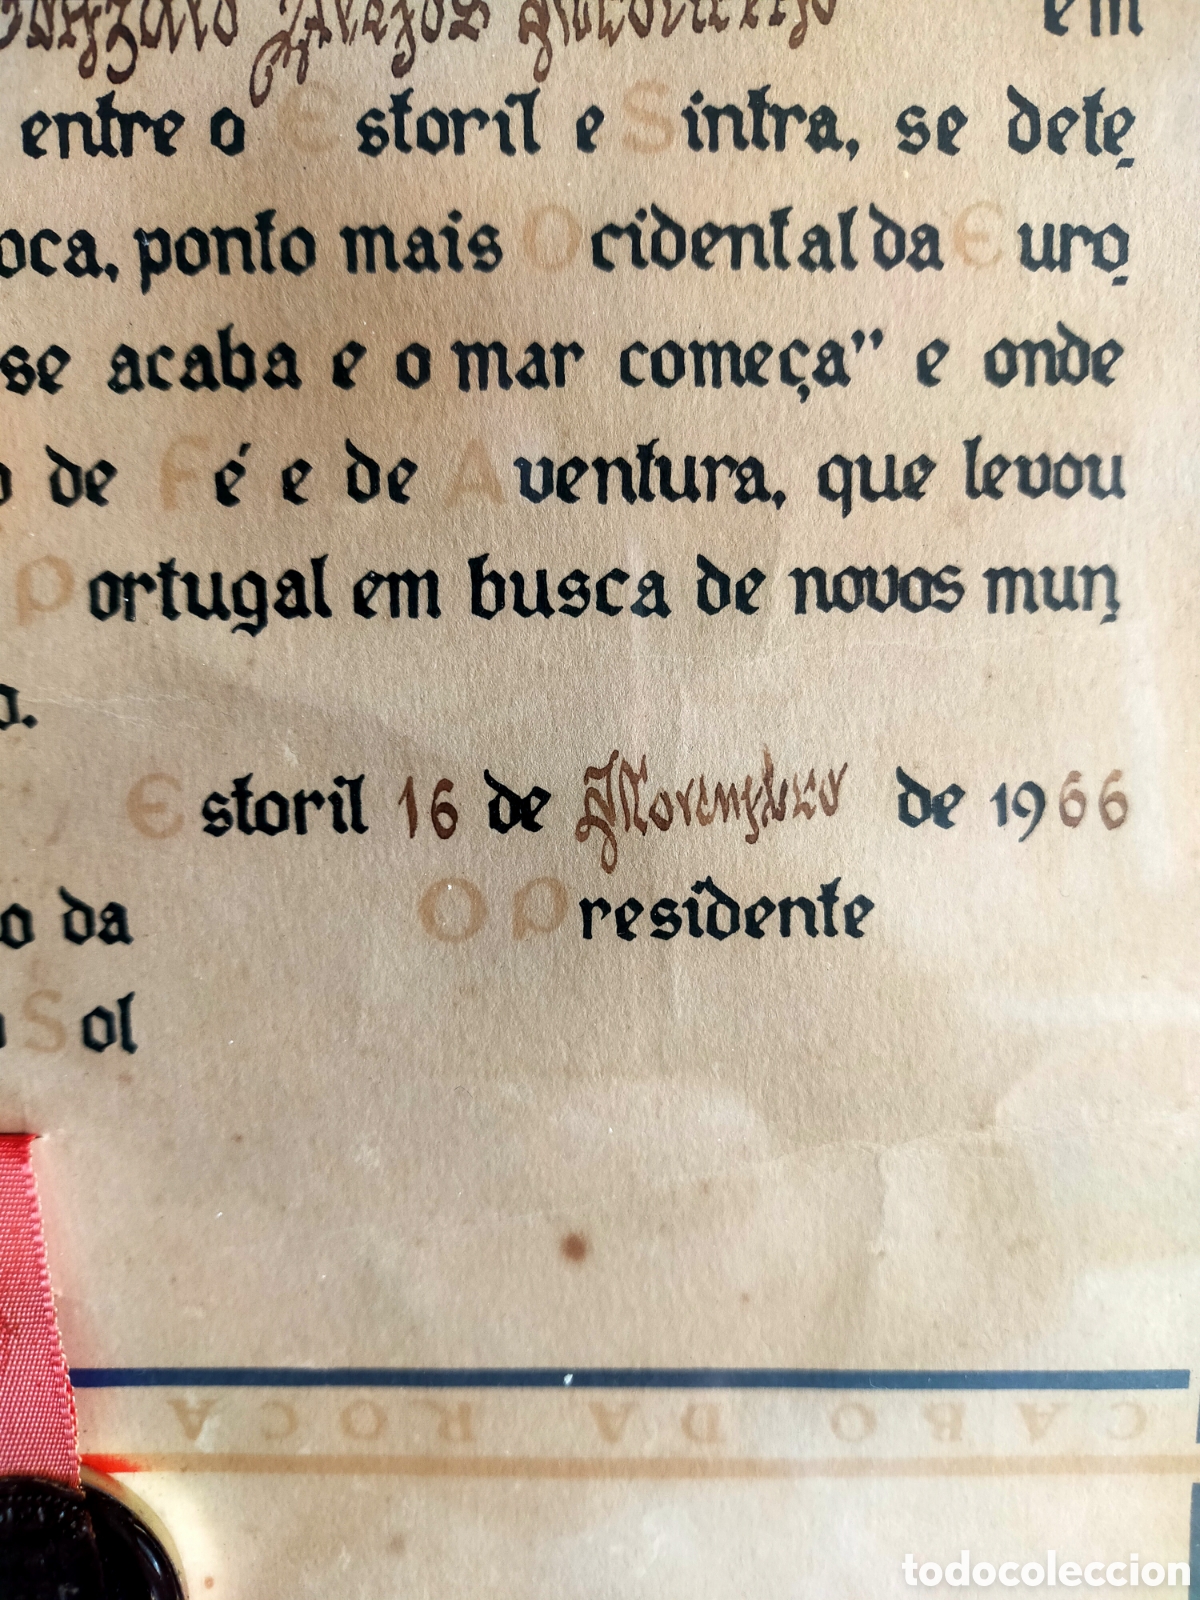 em
entre o Estoril e Sintra, se dete
oca, ponto mais Ocidental da Euro
se acaba e o mar começa" e onde
o de Fé e de Aventura, que levou
Portugal em busca de novos mun
o.
Estoril 16 de Novembro de 1966
o da
O Presidente
Sol
CABO DA ROCA
todocoleccion